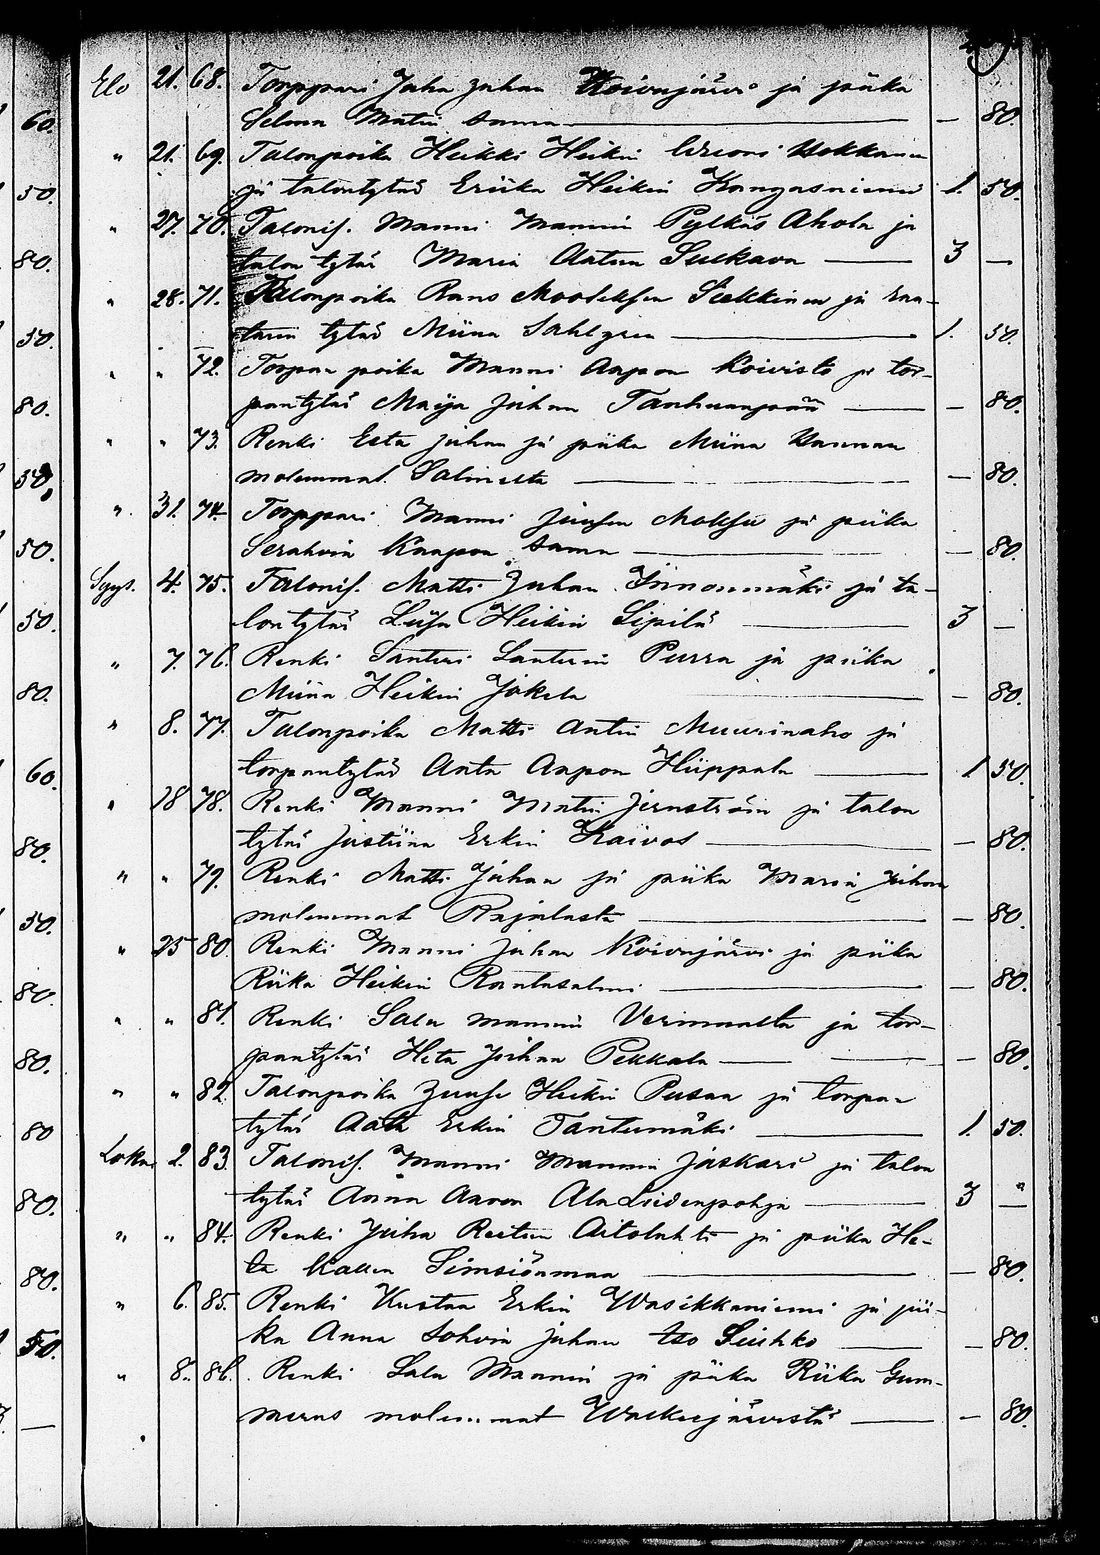 Elo 21. 68. Torppari Juha Juhan Koivujärvi ja piika
Selma Matin sama — 80.
" 21. 69. Talonpoika Heikki Heikin
ja talontytär Eriika Heikin Kangasniemi 1. 50.
" 27. 70. Talonis. Manni Mannin Pylkäs Ahola ja
talon tytär Maria Aatun Sulkava 3 —
" 28. 71. Talonpoika Rans Mooseksen Siekkinen ja raa-
tarin tytär Miina Sahlgren 1. 50.
" " 72. Torpan poika Manni Aapon Koivisto ja tor-
pantytär Maija Juhan Tanhuanpää — 80.
" " 73. Renki Esta Juhan ja piika Miina Hannun
molemmat Salmelta — 80.
" 31. 74. Torppari Manni Juusen ja piika
Serahvia Kaapon sama — 80.
Syys. 4. 75. Talonis. Matti Juhan Iinonmäki ja ta-
lontytär Liisa Heikin Sipilä 3 —
" 7. 76. Renki Santeri Santerin Purra ja piika
Miina Heikin Jokela — 80.
" 8. 77. Talonpoika Matti Antin Muurinaho ja
torpantytär Anta Aapon Hiippala 1 50.
" 18 78. Renki Manni Matin Jernström ja talon
tytär Justiina Erkin Kaivos — 80.
" " 79. Renki Matti Juhan ja piika Maria Juhan
molemmat Rajalasta — 80.
" 25 80. Renki Manni Juhan Koivujärvi ja piika
Riika Heikin Rantasalmi — 80.
" " 81. Renki Salu Mannin Vermaalta ja tor-
pantytär Heta Juhan Pekkala — 80.
" " 82. Talonpoika Juuse Heikin Pusaa ja torpan
tytär Erkin Tantumäki 1. 50.
Loka. 2. 83. Talonis. Manni Mannin Jaskari ja talon
tytär Anna Aaron Ala Liidenpohja 3 "
" " 84. Renki Juha Reetun Aitolahti ja piika He-
ta Kallen Simsiönmaa — 80.
" 6. 85. Renki Kustaa Erkin Wasikkaniemi ja pii-
ka Anna Sohvia Juhan Iso Liuhko — 80.
" 8. 86. Renki Salu Mannin ja piika Riika Gum-
merus molemmat Walkeejärvestä — 80.